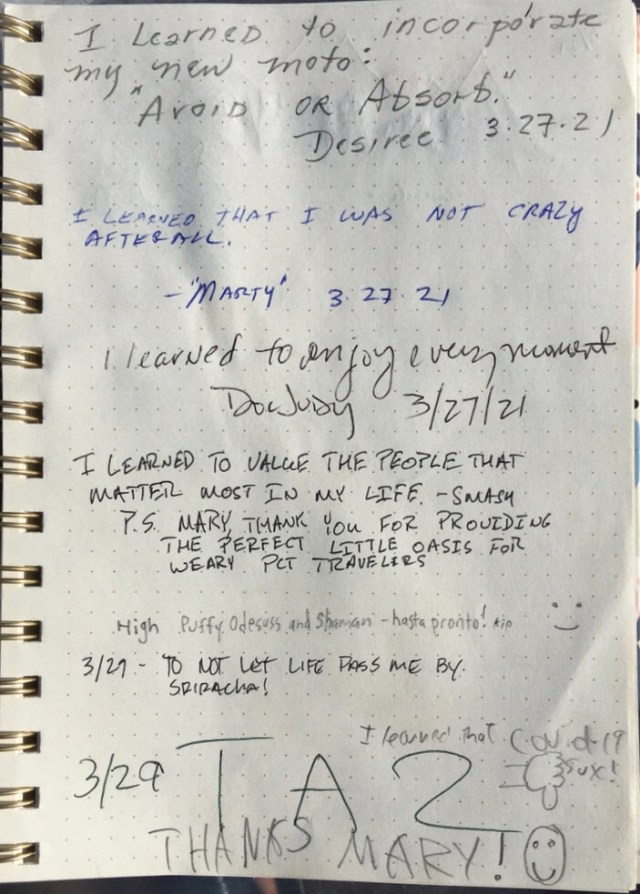 I Learned to incorporate
my new moto:
"Avoid or Absorb."
Desiree 3.27.21
I LEARNED THAT I WAS NOT CRAZY
AFTERALL.
- "MARTY" 3.27.21
I learned to enjoy every moment
DocJudy 3/27/21
I LEARNED TO VALUE THE PEOPLE THAT
MATTER MOST IN MY LIFE. - SMASH
P.S. MARY, THANK YOU FOR PROVIDING
THE PERFECT LITTLE OASIS FOR
WEARY PCT TRAVELERS
High Puffy Odesuss and Shaman - hasta pronto!
3/29 - TO NOT LET LIFE PASS ME BY.
SRIRACHA!
I learned that Covid-19
sux!
3/29 TAZ
THANKS MARY!